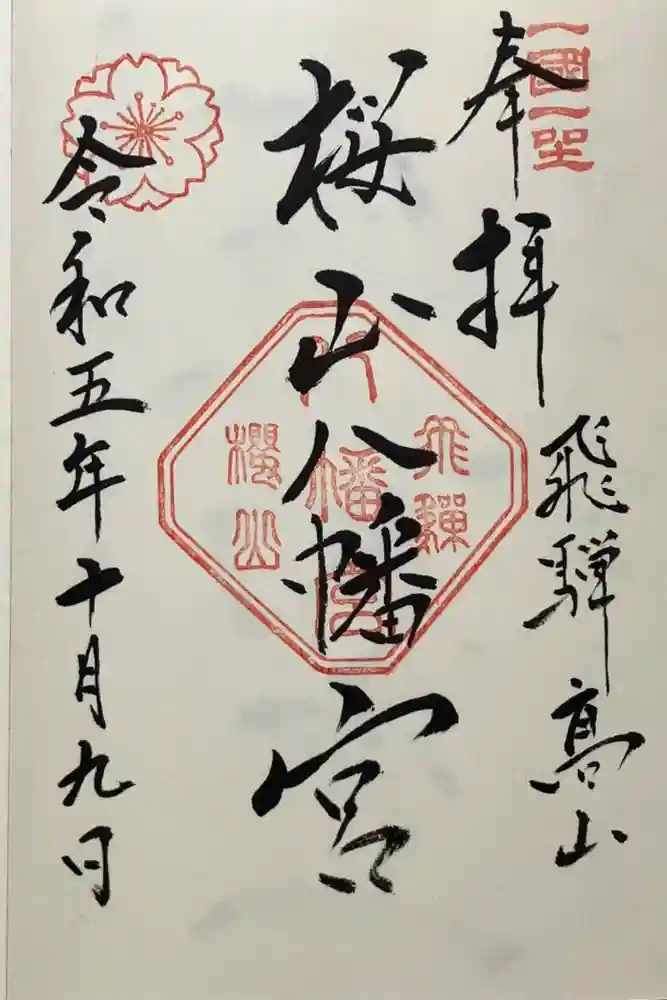 一國一社
奉拝
飛騨高山
桜山八幡宮
飛騨
八幡宮
櫻山
令和五年十月九日